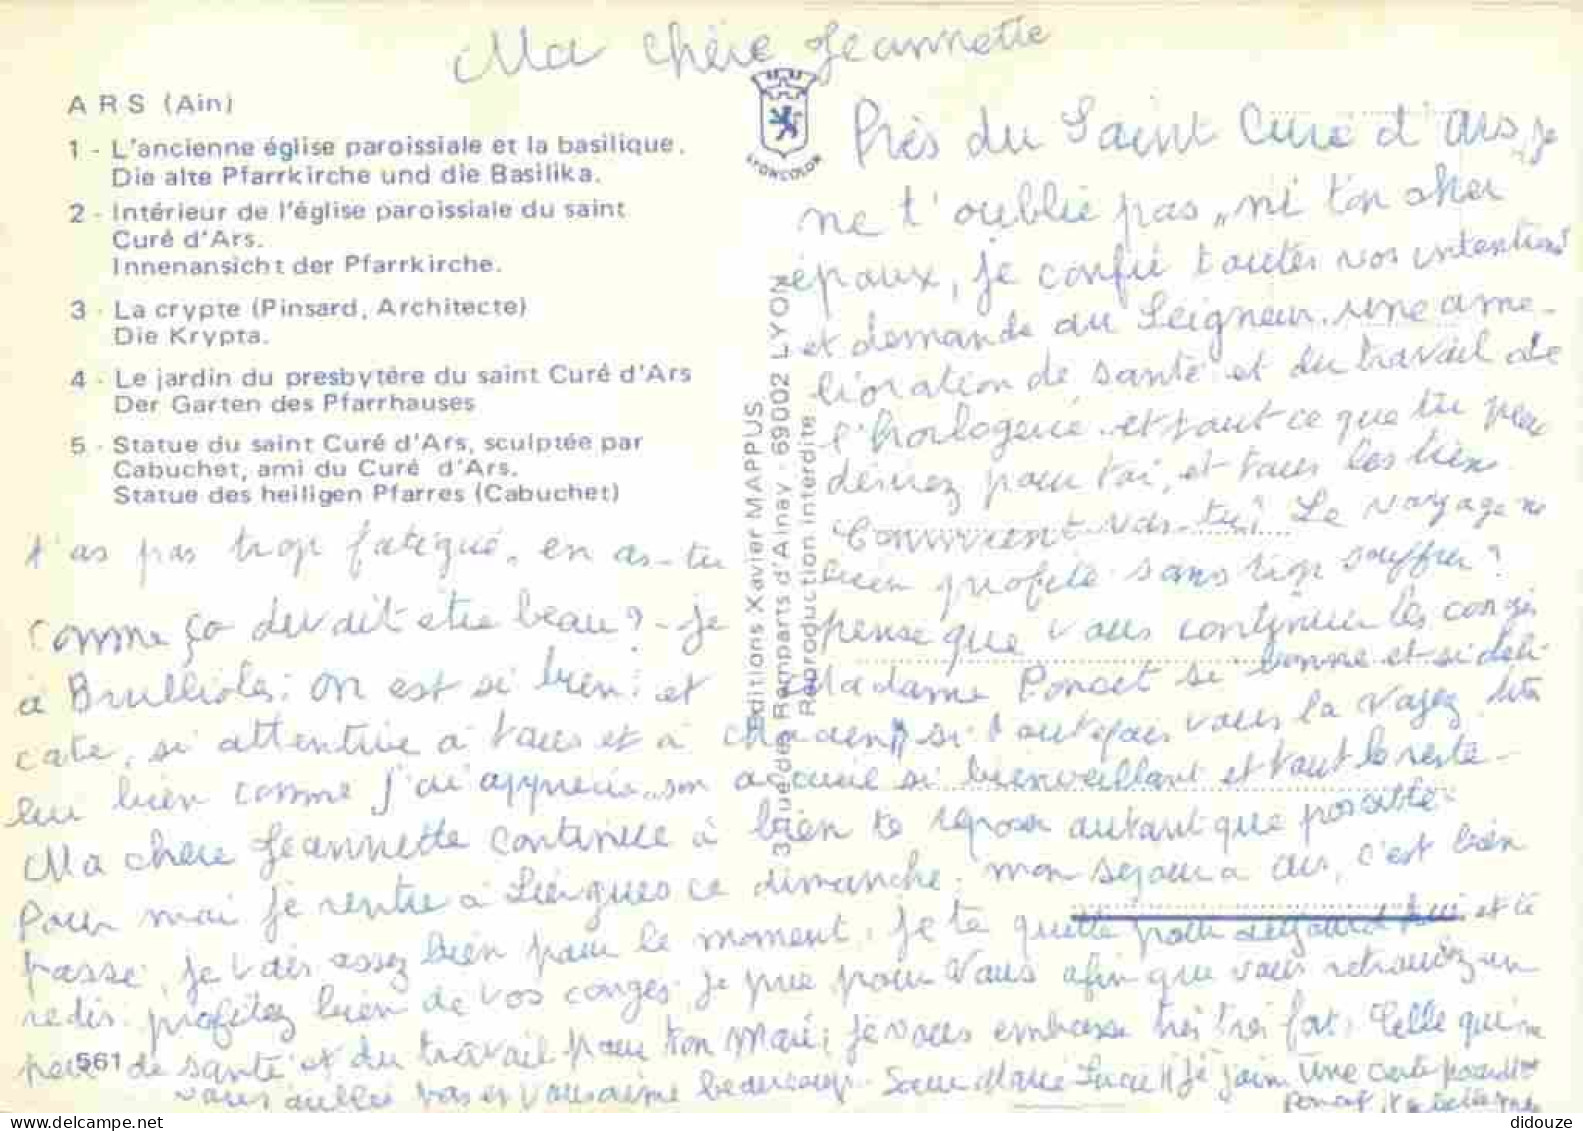 Ma chère Jeannette
ARS (Ain)
1 - L'ancienne église paroissiale et la basilique.
Die alte Pfarrkirche und die Basilika.
2 - Intérieur de l'église paroissiale du saint
Curé d'Ars.
Innenansicht der Pfarrkirche.
3 - La crypte (Pinsard, Architecte)
Die Krypta.
4 - Le jardin du presbytère du saint Curé d'Ars
Der Garten des Pfarrhauses
5 - Statue du saint Curé d'Ars, sculptée par
Cabuchet, ami du Curé d'Ars.
Statue des heiligen Pfarres (Cabuchet)
LYONCOLOR
Editions Xavier MAPPUS
3 rue des Remparts d'Ainay - 69002 LYON
Reproduction interdite
Près du Saint Curé d'Ars, je
ne t'oublie pas, ni ton cher
épaux, je confie toutes vos intentions
et demande au Seigneur une amé-
lioration de santé et du travail de
l'horlogerie et tout ce que tu peu
désirez pour toi, et tous les tiens
Comment vas-tu? Le voyage
bien profité sans trop souffrir?
t'as pas trop fatigué, en as-tu
comme ça devait être beau? - Je pense que vous continuer les congés
à Brullioles: on est si bien: et Madame Poncet si bonne et si déli-
cate, si attentive à tous et à chacun, si vous la voyez dites
lui bien comme j'ai apprécié son accueil si bienveillant et tout le reste -
Ma chère Jeannette continue à bien te reposer autant que possible.
Pour moi je rentre à ce dimanche. mon séjour a Ars, c'est bien
passé. Je vais assez bien pour le moment. Je te quitte pour aujourd'hui et te
redis profitez bien de vos congés. Je prie pour vous afin que vous retrouviez un
peu de santé et du travail pour ton Mari; je vous embrasse très très fort. Celle qui ne
vous oublie pas et vous aime beaucoup. Soeur Marie Lucie Je joins une carte pour
Poncet
561
didouze